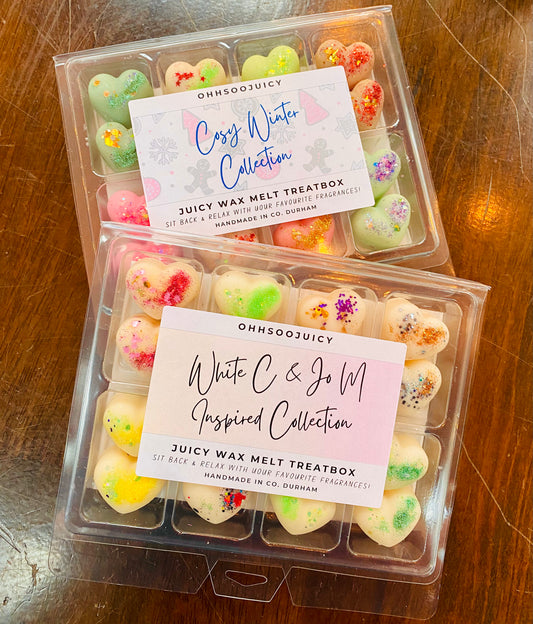 OHHSOOJUICY
Cosy Winter
Collection
JUICY WAX MELT TREATBOX
SIT BACK & RELAX WITH YOUR FAVOURITE FRAGRANCES!
HANDMADE IN CO. DURHAM
OHHSOOJUICY
White C & Jo M
Inspired Collection
JUICY WAX MELT TREATBOX
SIT BACK & RELAX WITH YOUR FAVOURITE FRAGRANCES!
HANDMADE IN CO. DURHAM